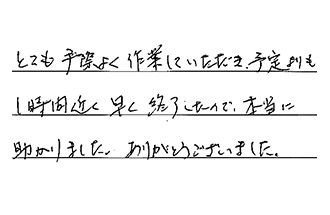 とても手際よく作業していただき、予定よりも
1時間近く早く終了したので、本当に
助かりました。ありがとうございました。